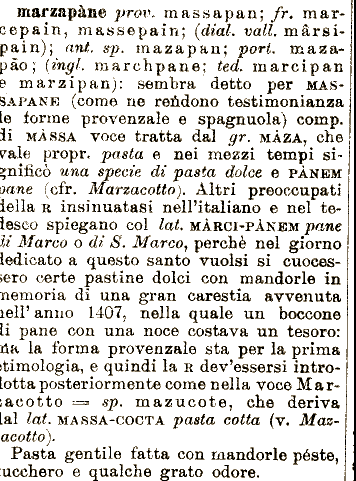 marzapàne prov. massapan; fr. mar-
cepain, massepain; (dial. vall. mârsi-
pain); ant. sp. mazapan; port. maza-
pão; (ingl. marchpane; ted. marcipan
e marzipan): sembra detto per MAS-
SAPANE (come ne rendono testimonianza
le forme provenzale e spagnuola) comp.
di MÀSSA voce tratta dal gr. MÀZA, che
vale propr. pasta e nei mezzi tempi si-
gnificò una specie di pasta dolce e PÀNEM
pane (cfr. Marzacotto). Altri preoccupati
della R insinuatasi nell'italiano e nel te-
desco spiegano col lat. MÀRCI-PÀNEM pane
di Marco o di S. Marco, perchè nel giorno
dedicato a questo santo vuolsi si cuoces-
sero certe pastine dolci con mandorle in
memoria di una gran carestia avvenuta
nell'anno 1407, nella quale un boccone
di pane con una noce costava un tesoro:
ma la forma provenzale sta per la prima
etimologia, e quindi la R dev'essersi intro-
dotta posteriormente come nella voce Mar-
zacotto = sp. mazucote, che deriva
dal lat. MASSA-COCTA pasta cotta (v. Maz-
zacotto).
Pasta gentile fatta con mandorle péste,
zucchero e qualche grato odore.